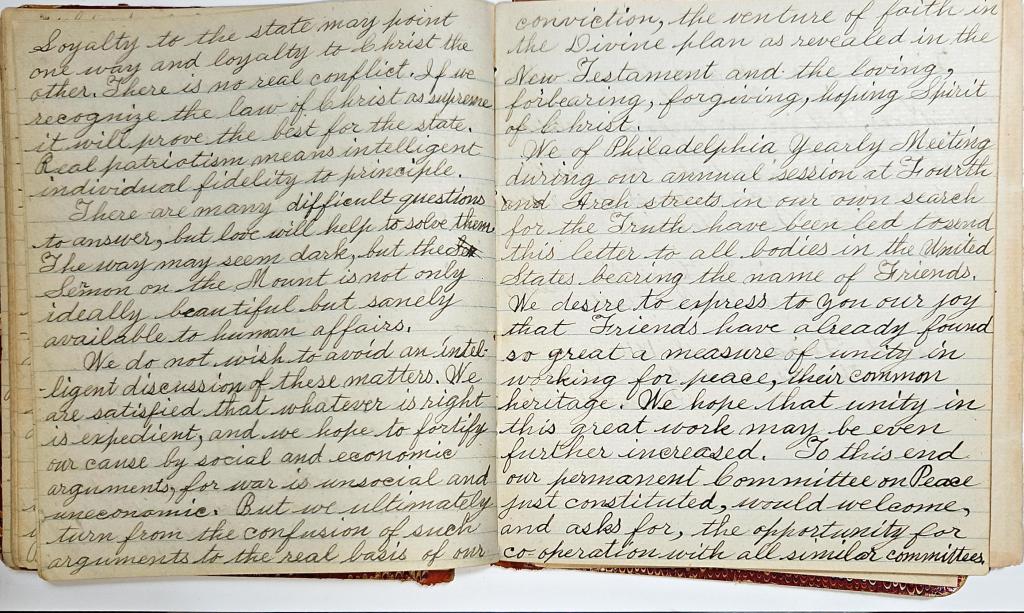 Loyalty to the state may point
one way and loyalty to Christ the
other. There is no real conflict. If we
recognize the law of Christ as supreme
it will prove the best for the state.
Real patriotism means intelligent
individual fidelity to principle.
There are many difficult questions
to answer, but love will help to solve them
The way may seem dark, but the
Sermon on the Mount is not only
ideally beautiful but sanely
available to human affairs.
We do not wish to avoid an intel-
-ligent discussion of these matters. We
are satisfied that whatever is right
is expedient, and we hope to fortify
our cause by social and economic
arguments, for war is unsocial and
uneconomic. But we ultimately
turn from the confusion of such
arguments to the real basis of our
conviction, the venture of faith in
the Divine plan as revealed in the
New Testament and the loving,
forbearing, forgiving, hoping Spirit
of Christ.
We of Philadelphia Yearly Meeting
during our annual session at Fourth
and Arch streets in our own search
for the Truth have been led to send
this letter to all bodies in the United
States bearing the name of Friends.
We desire to express to you our joy
that Friends have already found
so great a measure of unity in
working for peace, their common
heritage. We hope that unity in
this great work may be even
further increased. To this end
our permanent Committee on Peace
just constituted, would welcome,
and asks for, the opportunity for
co operation with all similar committees.